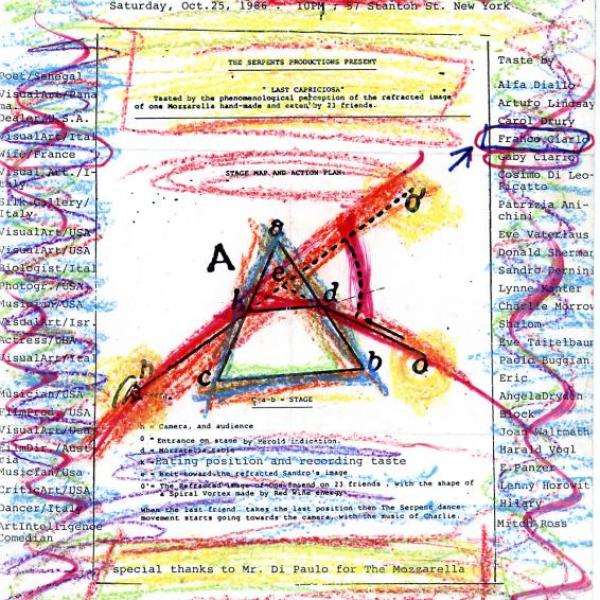 Saturday, Oct.25, 1986 - 10PM ; 57 Stanton St. New York
THE SERPENTS PRODUCTIONS PRESENT
" LAST CAPRICIOSA"
Teated by the phenomenological perception of the refracted image
of one Mozzarella hand-made and eaten by 23 friends.
STAGE MAP AND ACTION PLAN
Poet/Senegal
VisualArt/Pana
ma.
Dealer/U.S.A.
VisualArt/Ital
Wife/France
Visual Art./I-
taly
Silk Gallery/
Italy
VisualArt/USA
VisualArt/USA
Biologist/Ital
Photogr./USA
Musician/USA
VisualArt/Isr.
Actress/USA
VisualArt/Ital
Musician/USA
FilmProd./USA
VisualArt/Usa
FilmDir./Aust
Musician/Usa
CriticArt/USA
Dancer/Italy
ArtIntelligence
Comedian
A
a
o'
e
k
d
h
c
b
o
c-a-b = STAGE
h = Camera, and audience
O = Entrance on stage by Herold indication.
d = Mozzarella table
k = Eating position and recording taste
e = Exit toward the refracted Sandro's image
O'= The Refracted image of one friend on 23 friends , with the shape of
a Spiral Vortex made by Red Wine energy
When the last friend takes the last position then The Serpent dance
movement starts going towards the camera, with the music of Charlie.
special thanks to Mr. Di Paulo for The Mozzarella
Taste by
Alfa Diallo
Arturo Lindsay
Carol Drury
Franco Ciarlo
Gaby Ciarlo
Cosimo Di Leo-
Ricatto
Patrizia Ani-
chini
Eve Vaterlaus
Donald Sherman
Sandro Dernini
Lynne Kanter
Charlie Morrow
Shalom
Eve Taitelbaum
Paolo Buggian
Eric
AngelaDryden
Block
Joan Waltmath
Harald Vogl
E.Panzer
Lenny Horowit
Hilary
Mitch Ross